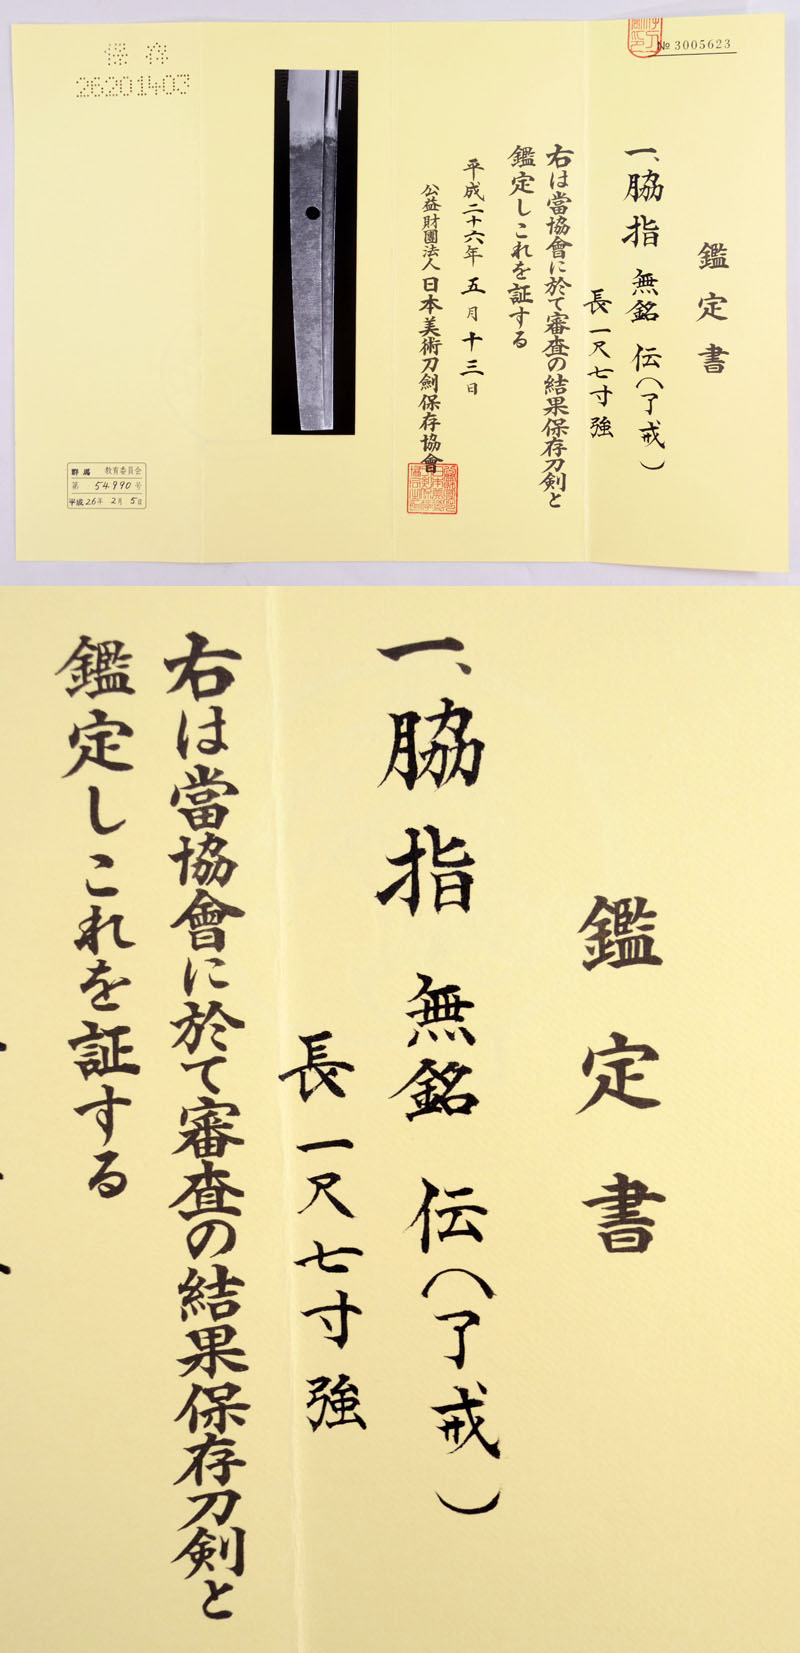 № 3005623
鑑定書
一、脇指 無銘 伝(了戒)
長一尺七寸強
右は當協會に於て審査の結果保存刀剣と
鑑定しこれを証する
平成二十六年五月十三日
公益財團法人日本美術刀劍保存協會
保存
26201403
群馬 教育委員会
第 54990 号
平成26年 2月 5日
鑑定書
一、脇指 無銘 伝(了戒)
長一尺七寸強
右は當協會に於て審査の結果保存刀剣と
鑑定しこれを証する